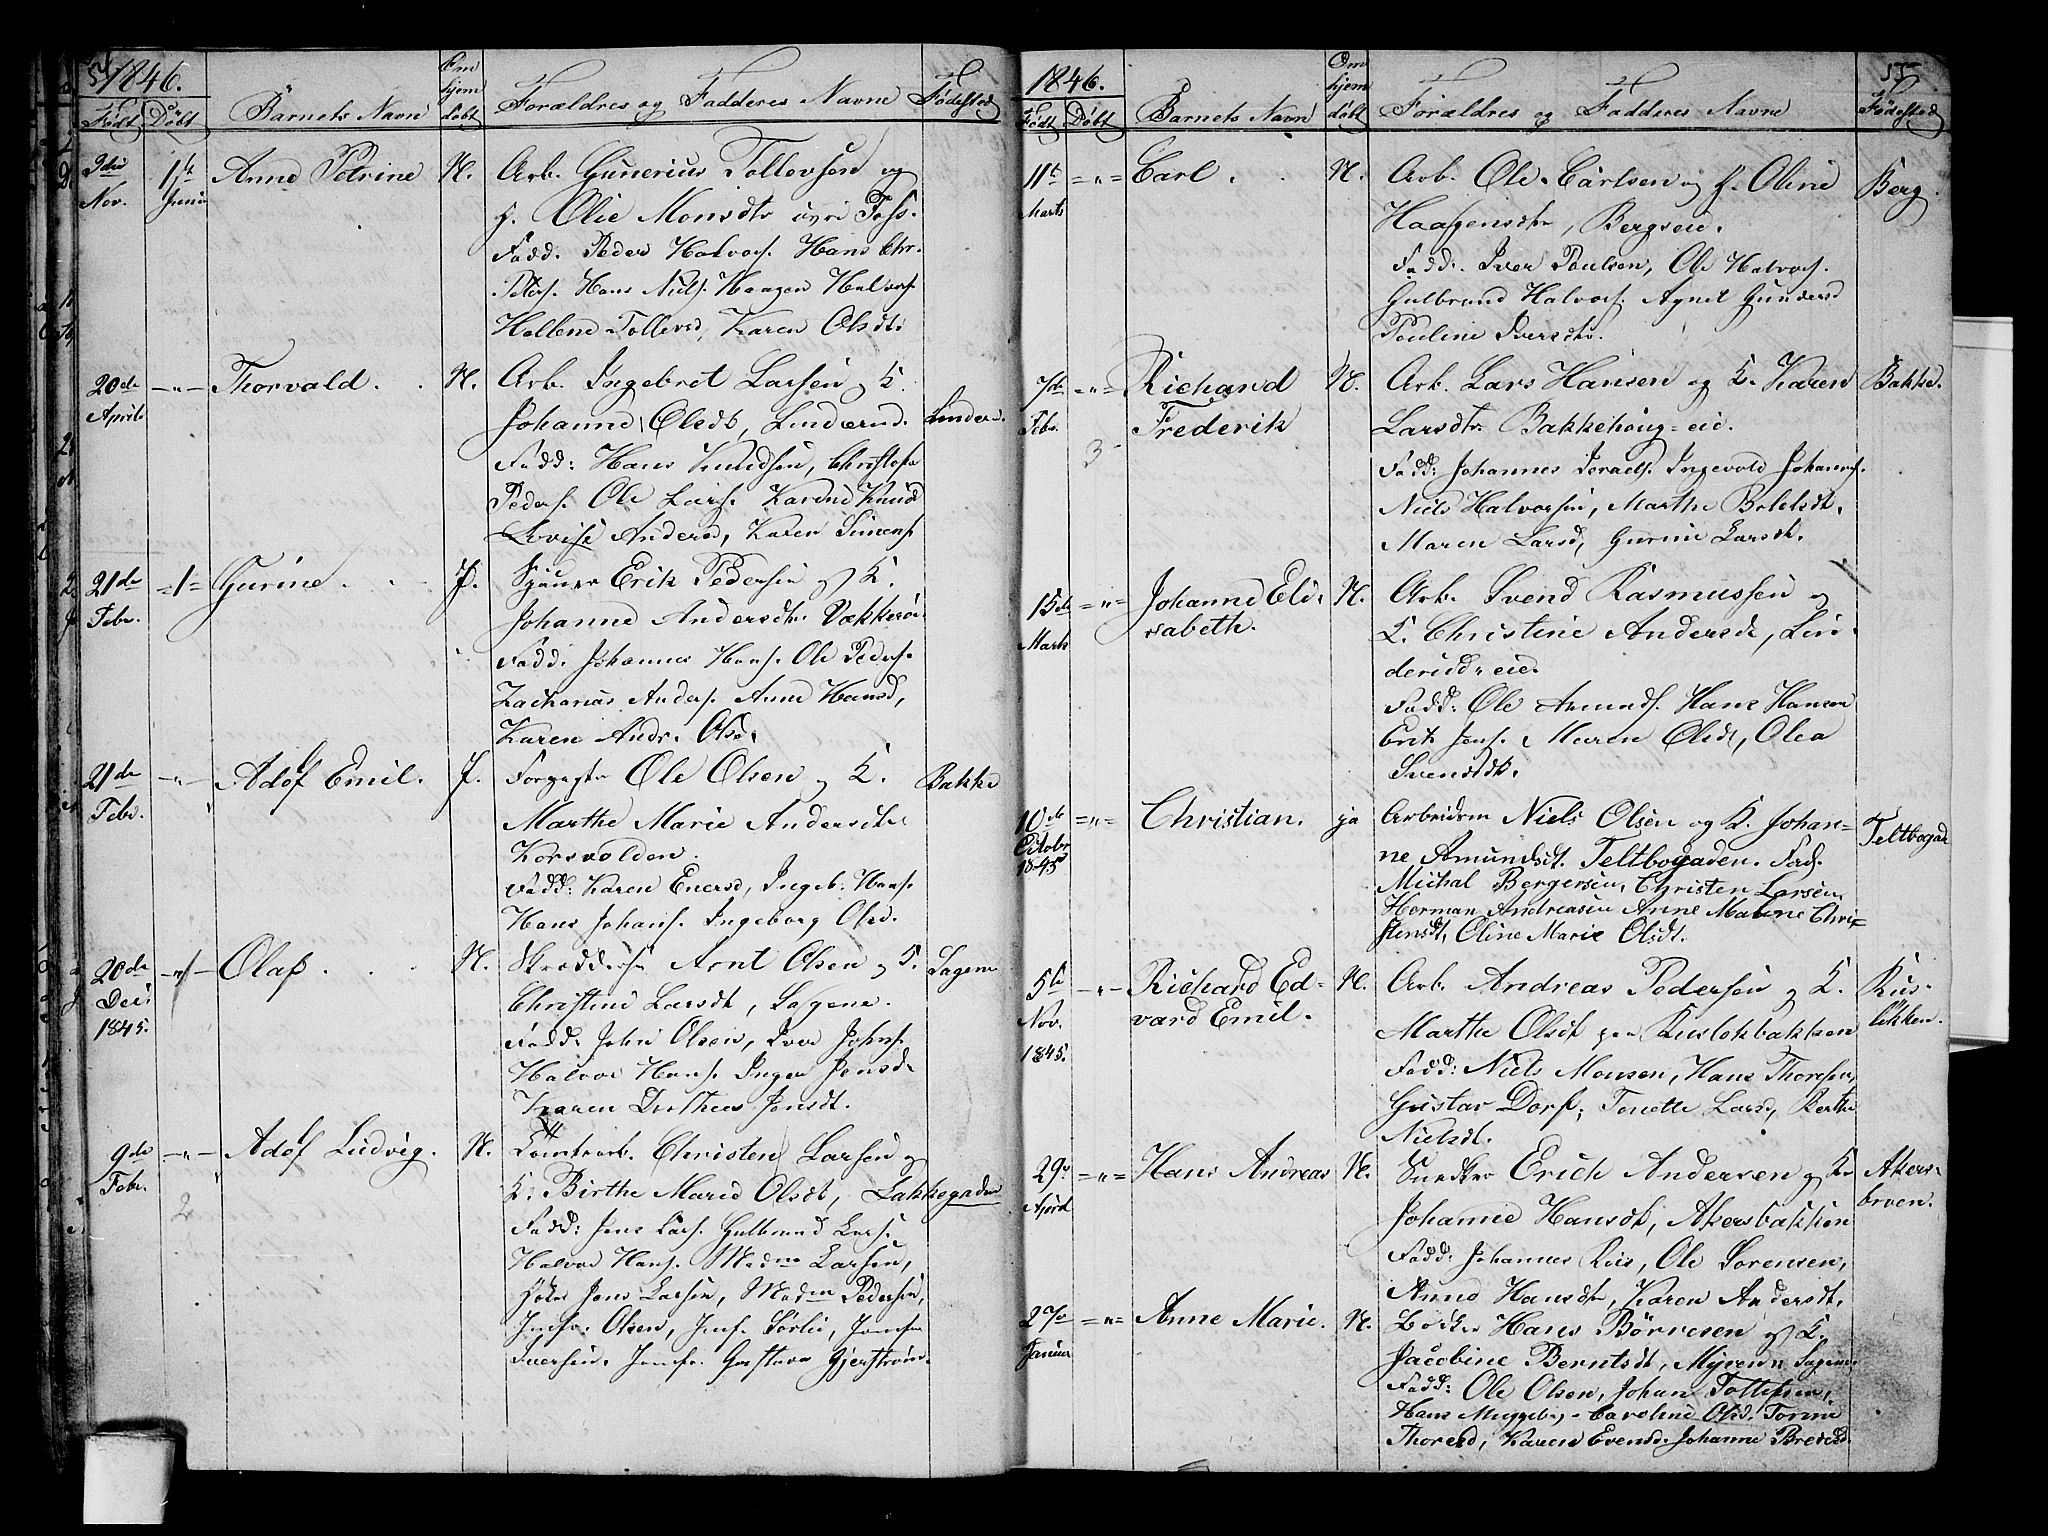 54 1846.
Født Døbt Barnets Navn Om hjem døbt Forældres og Fadderes Navne Fødested
3die Nov. 1ste Juni Anne Petrine N. Arb. Gunerius Tollevsen og
H. Olie Monsdtr øvre Foss.
Fadd. Peder Halvors. Hans Chr.
Peters. Hans Niels. Haagen Halvors.
Hellene Tollevsd, Karen Olsdt.
20de April -"- Thorvald. N. Arb. Ingebret Larsen og K.
Johanne Olsdt, Linderud. Linderud
Fadd: Hans Knudsen, Christofer
Peders. Ole Lars. Karine Knudsd
Lovise Andersd, Karen Simens.
21de Febr. Gurine J. Erik Pedersen og K.
Johanne Andersdt. Vækkerø
Fadd. Johannes Hans. Ole Peders.
Zacharias Anders. Anne Hansd,
Karen Andr. Olsd.
21de Febr. -"- Adolf Emil. J. Ole Olsen og K. Bakke
Marthe Marie Andersdt.
Korsvolden.
Fadd: Karen Enersd, Ingeb. Hans.
Hans Johans. Ingeborg Olsd.
20de Dec. 1845. Olaf N. Skrædder Arnt Olsen og K. Sagene
Christine Larsdt, Sagene.
Fadd. John Olsen, Iver Johns.
Halvor Hans. Inger Jensd.
Karen Dorthea Jensdt.
9de Febr. -"- Adolf Ludvig. N. Christen Larsen og
K. Birthe Marie Olsdt, Lakkegaden
Fadd: Jens Lars. Gulbrand Lars.
Halvor Hans. Madm Larsen,
Jens Larsen, Madm Pedersen,
Jomfr. Olsen, Jomf. Sörlie, Jomfr.
Iversen. Jomfr. Gustava Gjerstrøm.
2
1846. 55
Født Døbt Barnets Navn Om hjem døbt Forældres og Fadderes Navne Fødested
11te Marts ="= Carl. N. Arb. Ole Carlsen og H. Oline Berg.
Haagensdtr, Bergseie.
Fadd. Iver Poulsen, Ole Halvors.
Gulbrand Halvors. Agnet Gundersd
Pauline Iversdtr.
7de Febr. ="= Richard N. Arb. Lars Hansen og K. Karen Bakke.
Frederik Larsdtr Bakkehaug-eie.
3
Fadd: Johannes Israels. Ingevold Johanns.
Niels Halvorsen, Marthe Boletsdt.
Maren Larsd, Gurine Larsdt.
15de Marts ="= Johanne Eli- N. Arb. Svend Rasmussen og
sabeth. K. Christine Andersd, Lin-
derud-eie.
Fadd: Ole Amunds. Hans Hansen
Erik Jens. Maren Olsdt, Olea
Svendsdt.
10de Octobr 1845 ="= Christian. ja Arbeidsm Niels Olsen og K. Johan- Teltbogad
ne Amundsdt. Teltbogaden. Fad.
Michal Bergersen, Christen Larsen
Herman Andreasen Anne Malene Chri-
stensdt, Oline Marie Olsdt.
5te Nov. 1845. -"- Richard Ed- N. Arb. Andreas Pedersen og K. Rus-
vard Emil. Marthe Olsdt paa Rusløkbakken løkken.
Fadd: Niels Monsen, Hans Thoresen,
Gustav Dorf, Tonette Larsd, Berthe
Nielsdt.
29de April ="= Hans Andreas N. Snedker Erich Andersen og K. Akers-
Johanne Hansdt, Akersbakken broen.
Fadd: Johannes Ries, Ole Sorensen,
Anne Hansdt, Karen Andersdt.
27de Januar ="= Anne Marie. N. Bødker Hans Börresen og K.
Jacobine Berntsdt, Myren Sagene
Fadd: Ole Olsen, Johan Tollefsen,
Hans Muggeby. Caroline Olsd. Torine
Thoresd, Karen Evensd. Johanne Bredesd.